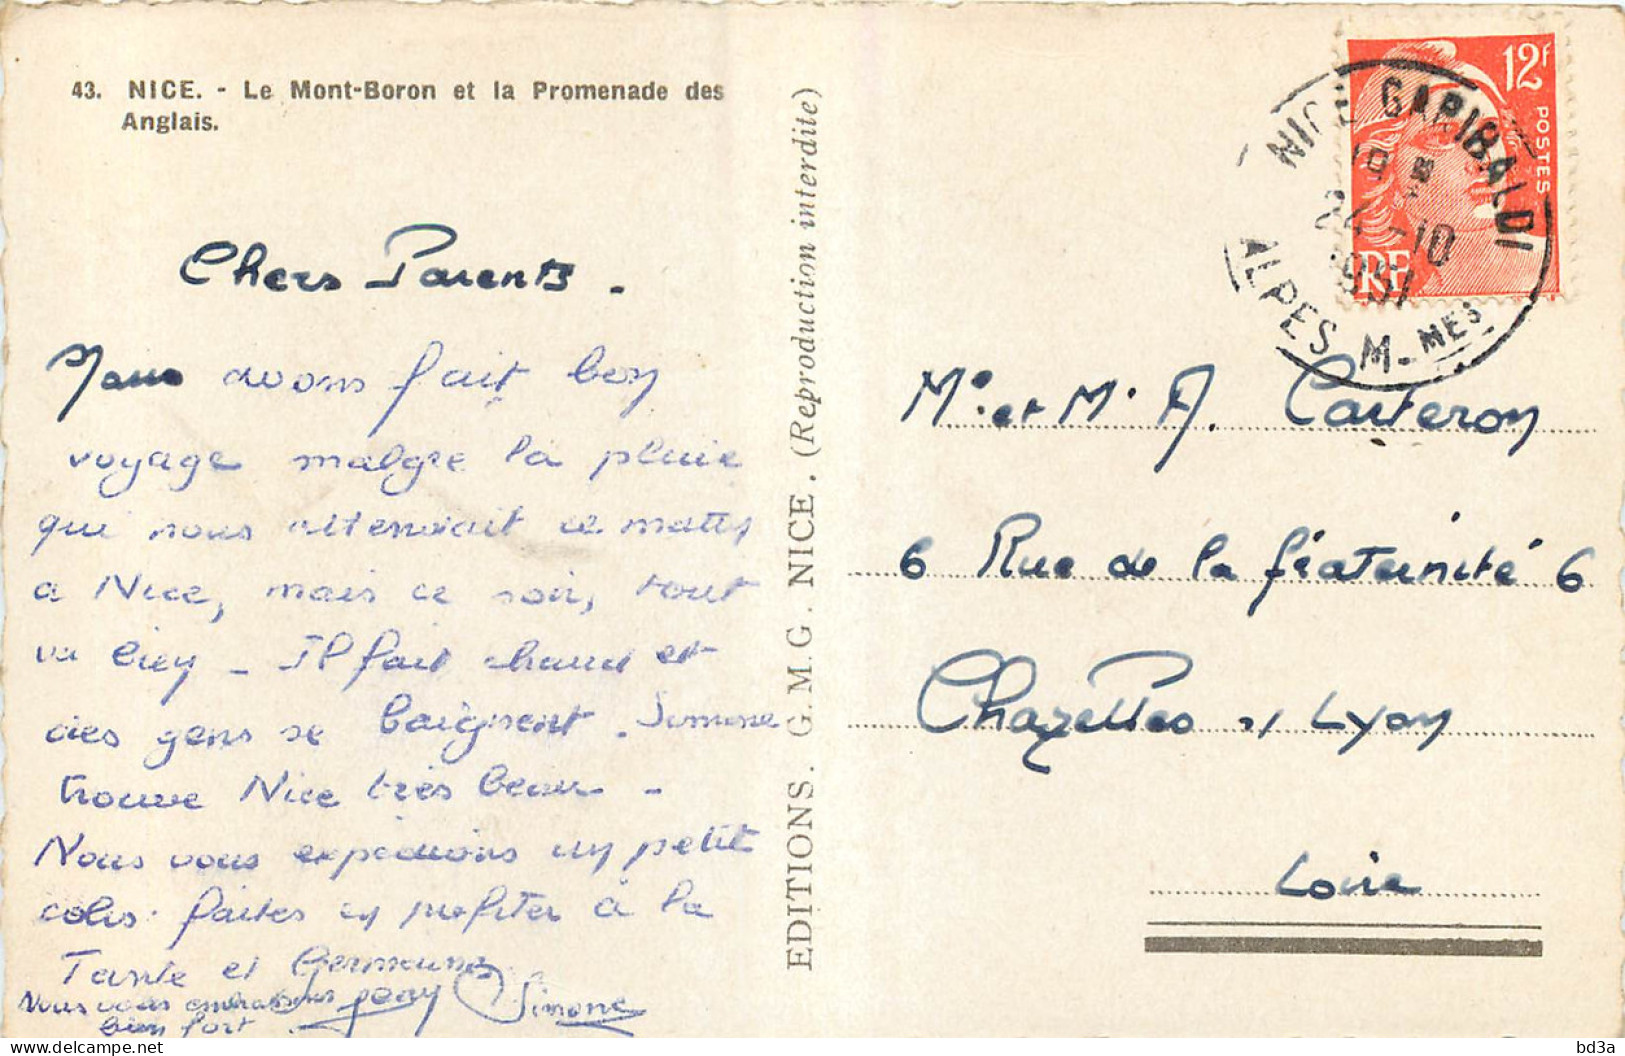 43. NICE. - Le Mont-Boron et la Promenade des
Anglais.
Chers Parents -
Nous avons fait bon
voyage malgre la pluie
qui nous attendait ce matin
a Nice, mais ce soir, tout
va bien - Il fait chaud et
des gens se baignent. Simone
trouve Nice très beau -
Nous vous expedions un petit
colis. faites en profiter à la
Tante et Germaine
Nous vous embrassons Jeany Simone
bien fort.
EDITIONS. G. M. G. NICE. (Reproduction interdite)
12F
POSTES
RF
NICE GARIBALDI
18 H
24 -10
1951
ALPES M-MES
Mr. et Me. A. Carteron
6 Rue de la fraternité 6
Chazelles s/ Lyon
Loire
delcampe.net
bd3a